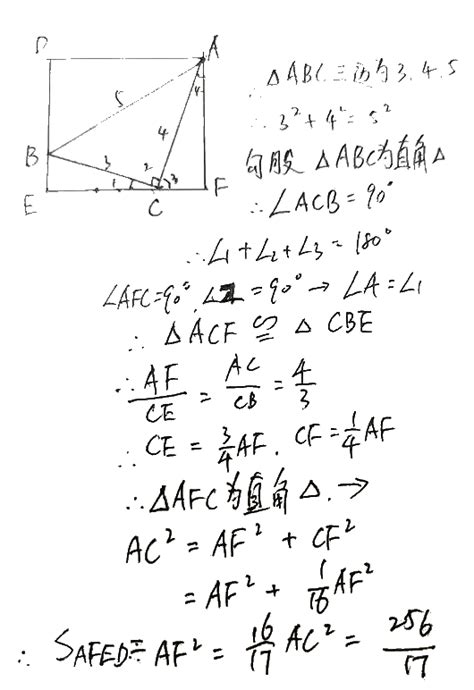 D A
4
5
4
B 3 2
1 3
E C F
∴ △ABC三边为3.4.5
∴ 3²+4²=5²
勾股 △ABC为直角△
∴∠ACB=90°
∴∠1+∠2+∠3=180°
∠AFC=90°,∠2=90°→∠A=∠1
∴ △ACF ≌ △CBE
∴ AF/CE = AC/CB = 4/3
∴ CE = 3/4 AF. CF = 1/4 AF
∴△AFC为直角△.→
AC² = AF² + CF²
= AF² + 1/16 AF²
∴ SAFED = AF² = 16/17 AC² = 256/17